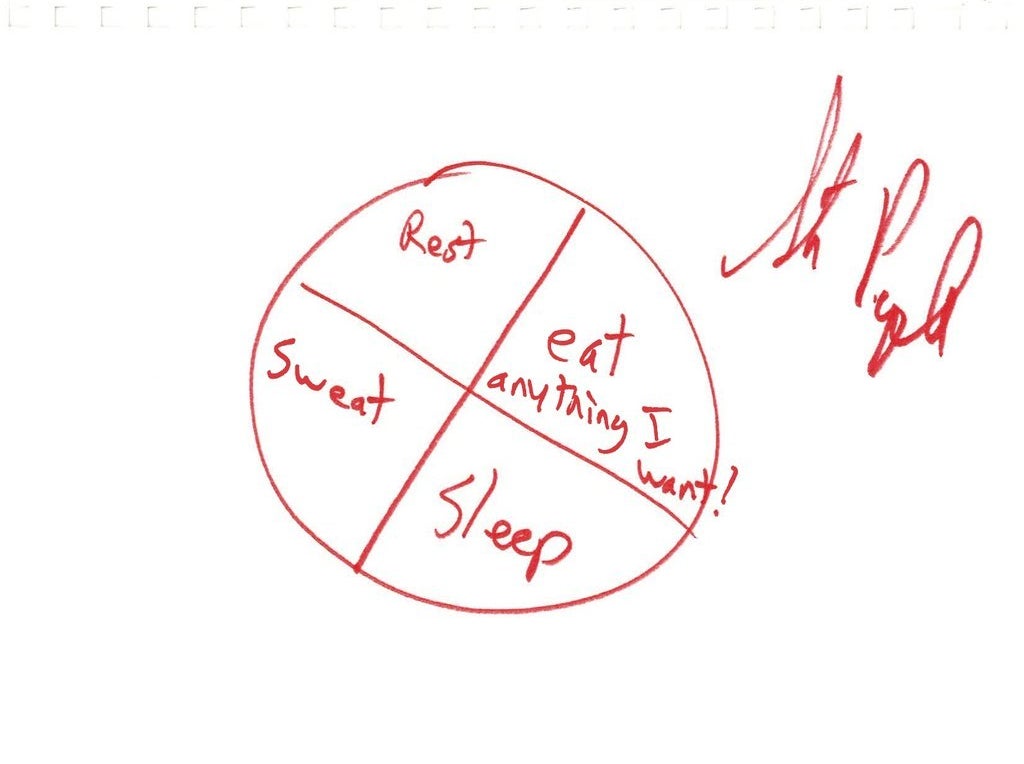 Rest
eat
anything I
want!
Sweat
Sleep